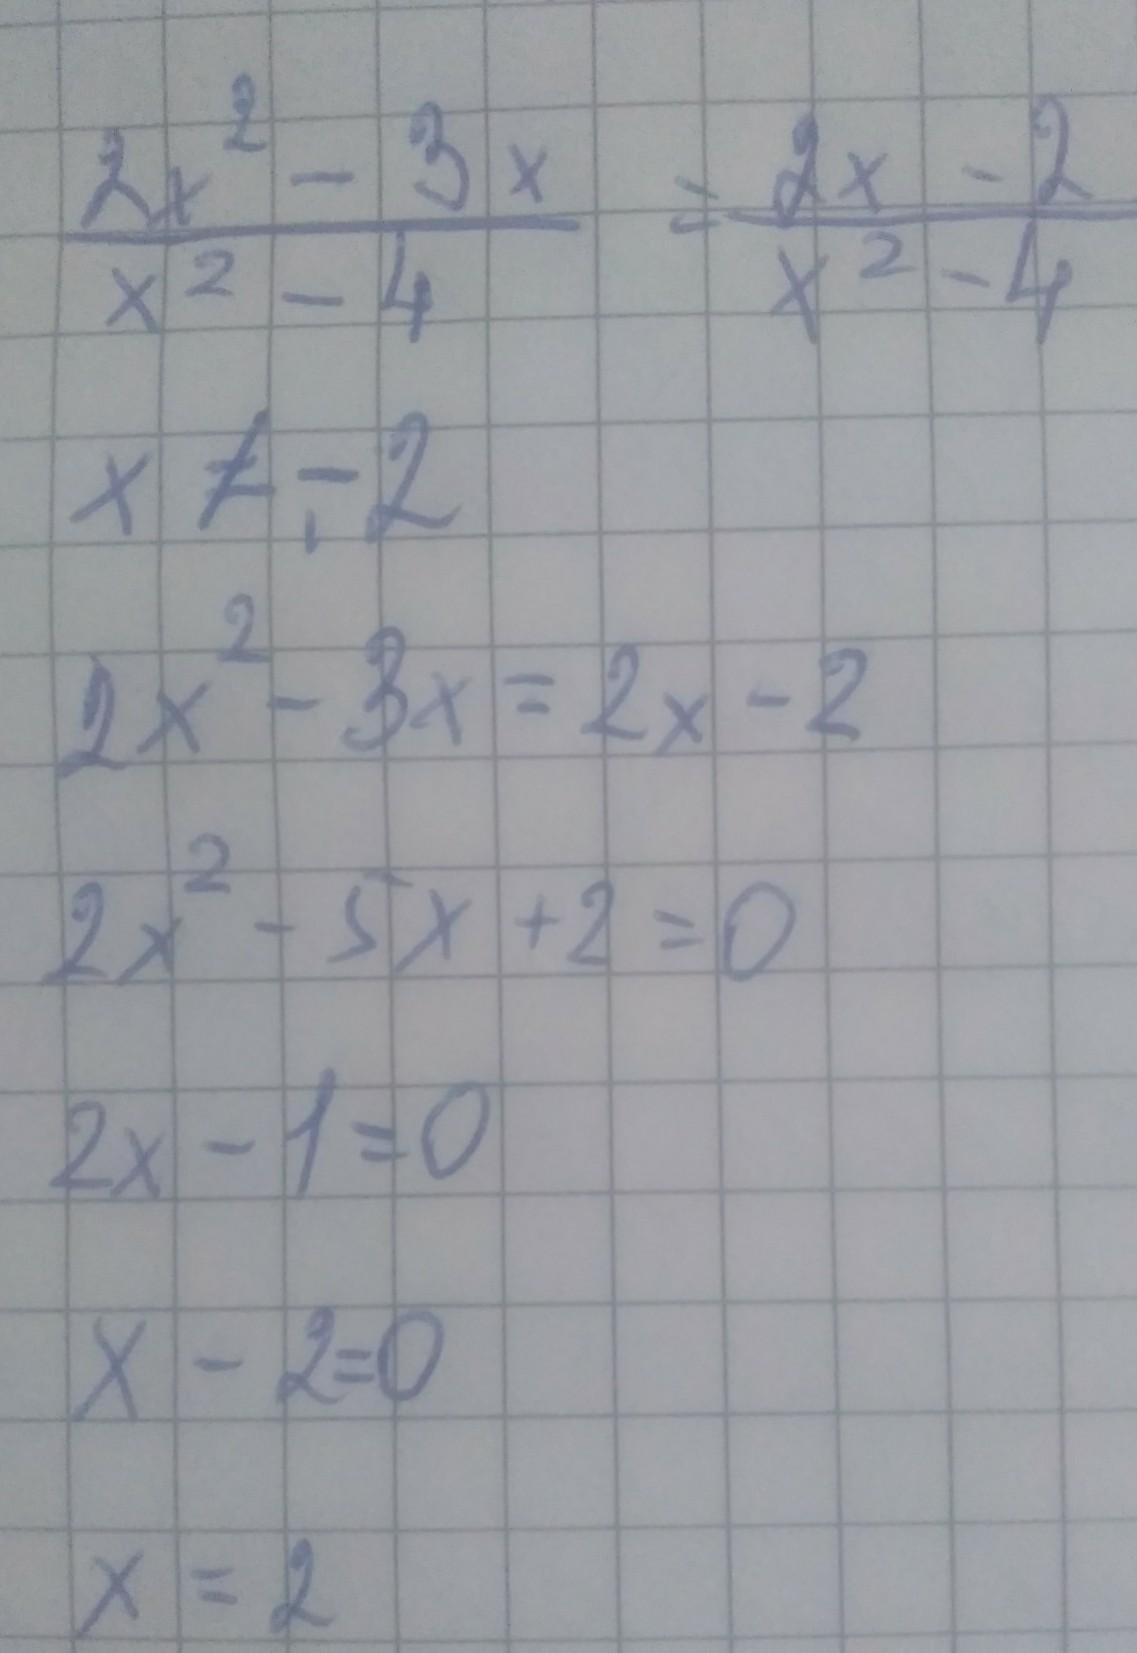 (2x² - 3x)/(x² - 4) = (2x - 2)/(x² - 4)
x ≠ -2
2x² - 3x = 2x - 2
2x² - 5x + 2 = 0
2x - 1 = 0
x - 2 = 0
x = 2